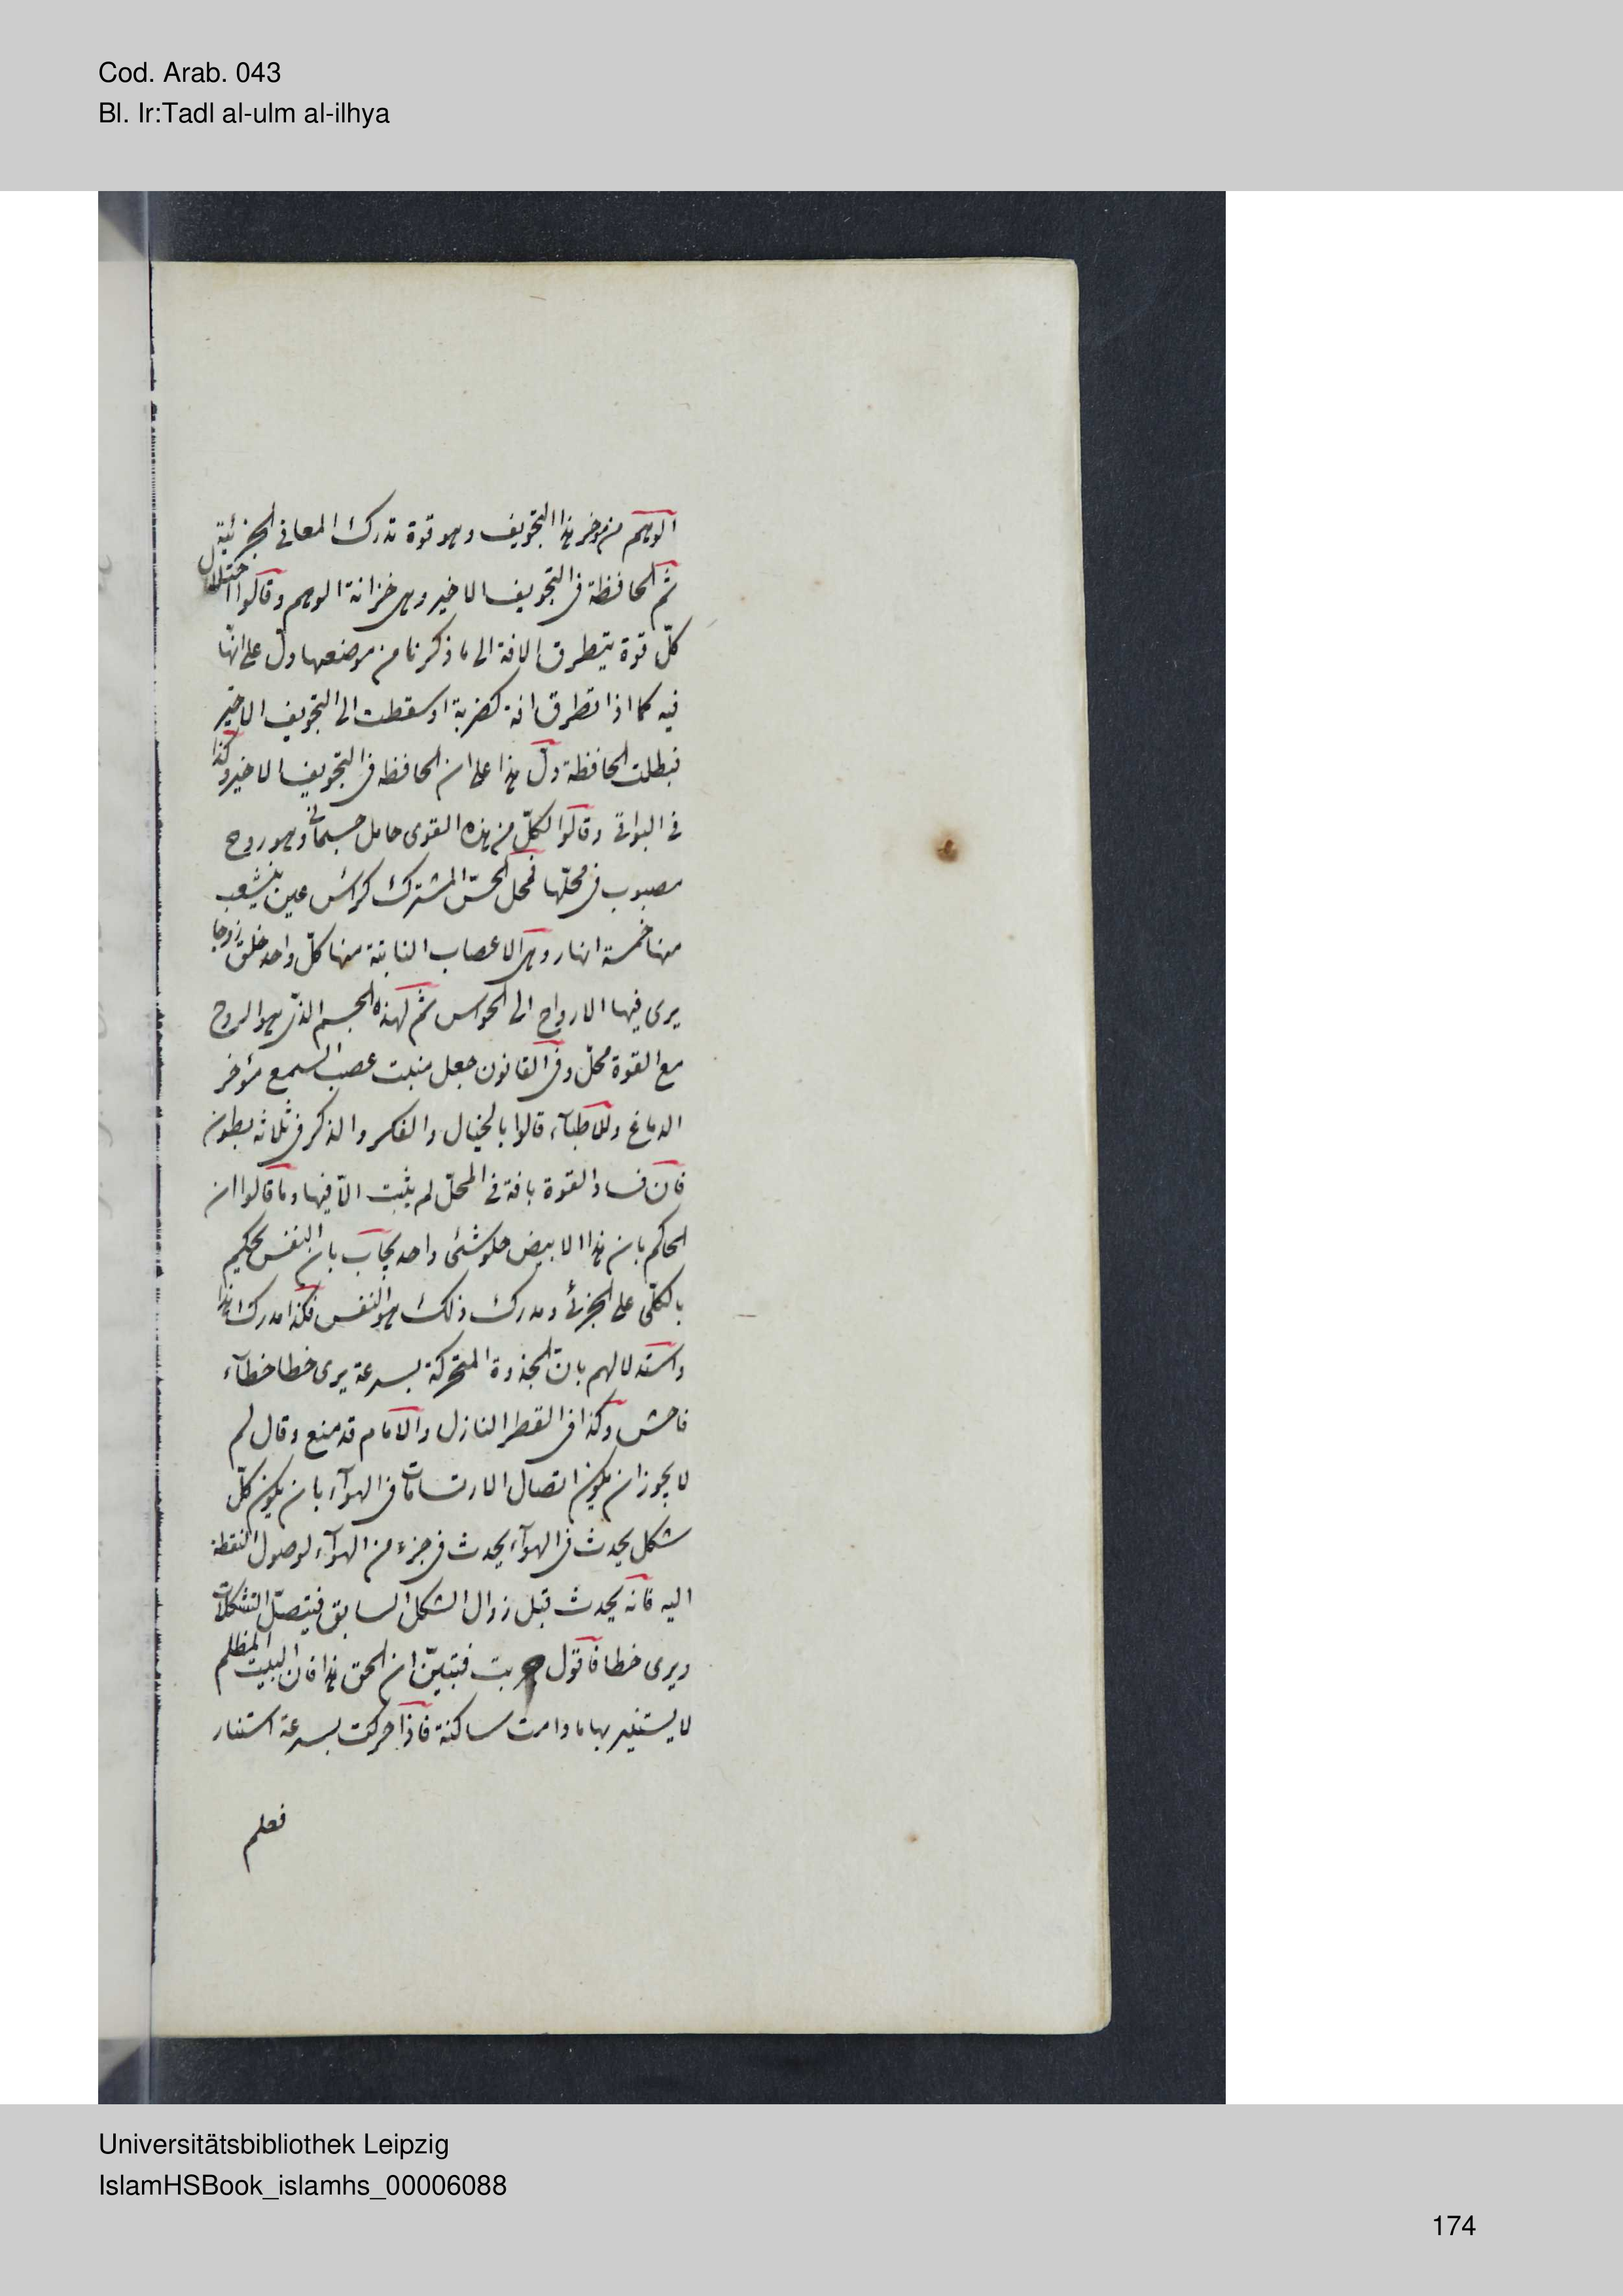 Cod. Arab. 043
Bl. Ir:Tadl al-ulm al-ilhya
الوهم من موخر هذا التجويف وهو قوة تدرك المعاني الجزئية
ثم الحافظة في التجويف الاخير وهي خزانة الوهم وقالوا اختلال
كلّ قوة يتطرق الافة الى ما ذكرنا من موضعها دلّ على انها
فيه كما اذا تطرق افة كضربة او سقطت الى التجويف الاخير
فبطلت الحافظة دلّ هذا على ان الحافظه في التجويف الاخير وكذا
في البواقي وقالوا لكلّ من هذه القوى حامل جسماني وهو روح
مصبوب في محلّها فمحل الحسّ المشترك كرأس عين ينشعب
منها خمسة انهار وهي الاعصاب النابتة منها كلّ واحد خلق زوجا
يرى فيها الارواح الى الحواس ثم لهذه الجسم الذي هو الروح
مع القوة محلّ وفي القانون جعل منبت عصب السمع مؤخر
الدماغ وللاطبآء قالوا بالخيال والفكر والذكر في ثلاثه بطون
فان فساد القوة بافة في المحلّ لم يثبت الّا فيها وما قالوا ان
الحاكم بان هذا الابيض حلو شئ واحد يجاب بان النفس يحكم
بالكلّي على الجزئي ومدرك ذلك هو النفس فكذا مدرك هذا
واستدلالهم بانّ الجذوة المتحركة بسرعة يرى خطا خطآء
فاحش وكذا في القطر النازل والامام قد منع وقال لم
لا يجوز ان يكون اتصال الارتسامات في الهوآء بان يكون كلّ
شكل يحدث في الهوآء يحدث في جزء من الهوآء لوصول النقطة
اليه فانه يحدث قبل زوال الشكل السابق فيتصل التشكلات
ويرى خطا فاقول جربت فتبيّن ان الحق هذا فان البيت المظلم
لا يستنير بها ما دامت ساكنة فاذا حركت بسرعة استنار
فعلم
Universitätsbibliothek Leipzig
IslamHSBook_islamhs_00006088
174